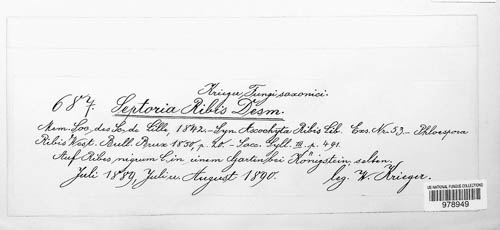 Krieger, Fungi saxonici.
687. Septoria Ribis Desm.
Mem. Soc. des Sc. de Lille, 1842. – Syn. Ascochyta Ribis Lib. Exs. Nr. 53. – Phloeospora
Ribis West. Bull. Brux. 1850, p. – Sacc. Syll. III. p. 491.
Auf Ribes nigrum L. in einem Garten bei Königstein, selten.
Juli 1889, Juli u. August 1890. leg. W. Krieger.
US NATIONAL FUNGUS COLLECTIONS
978949